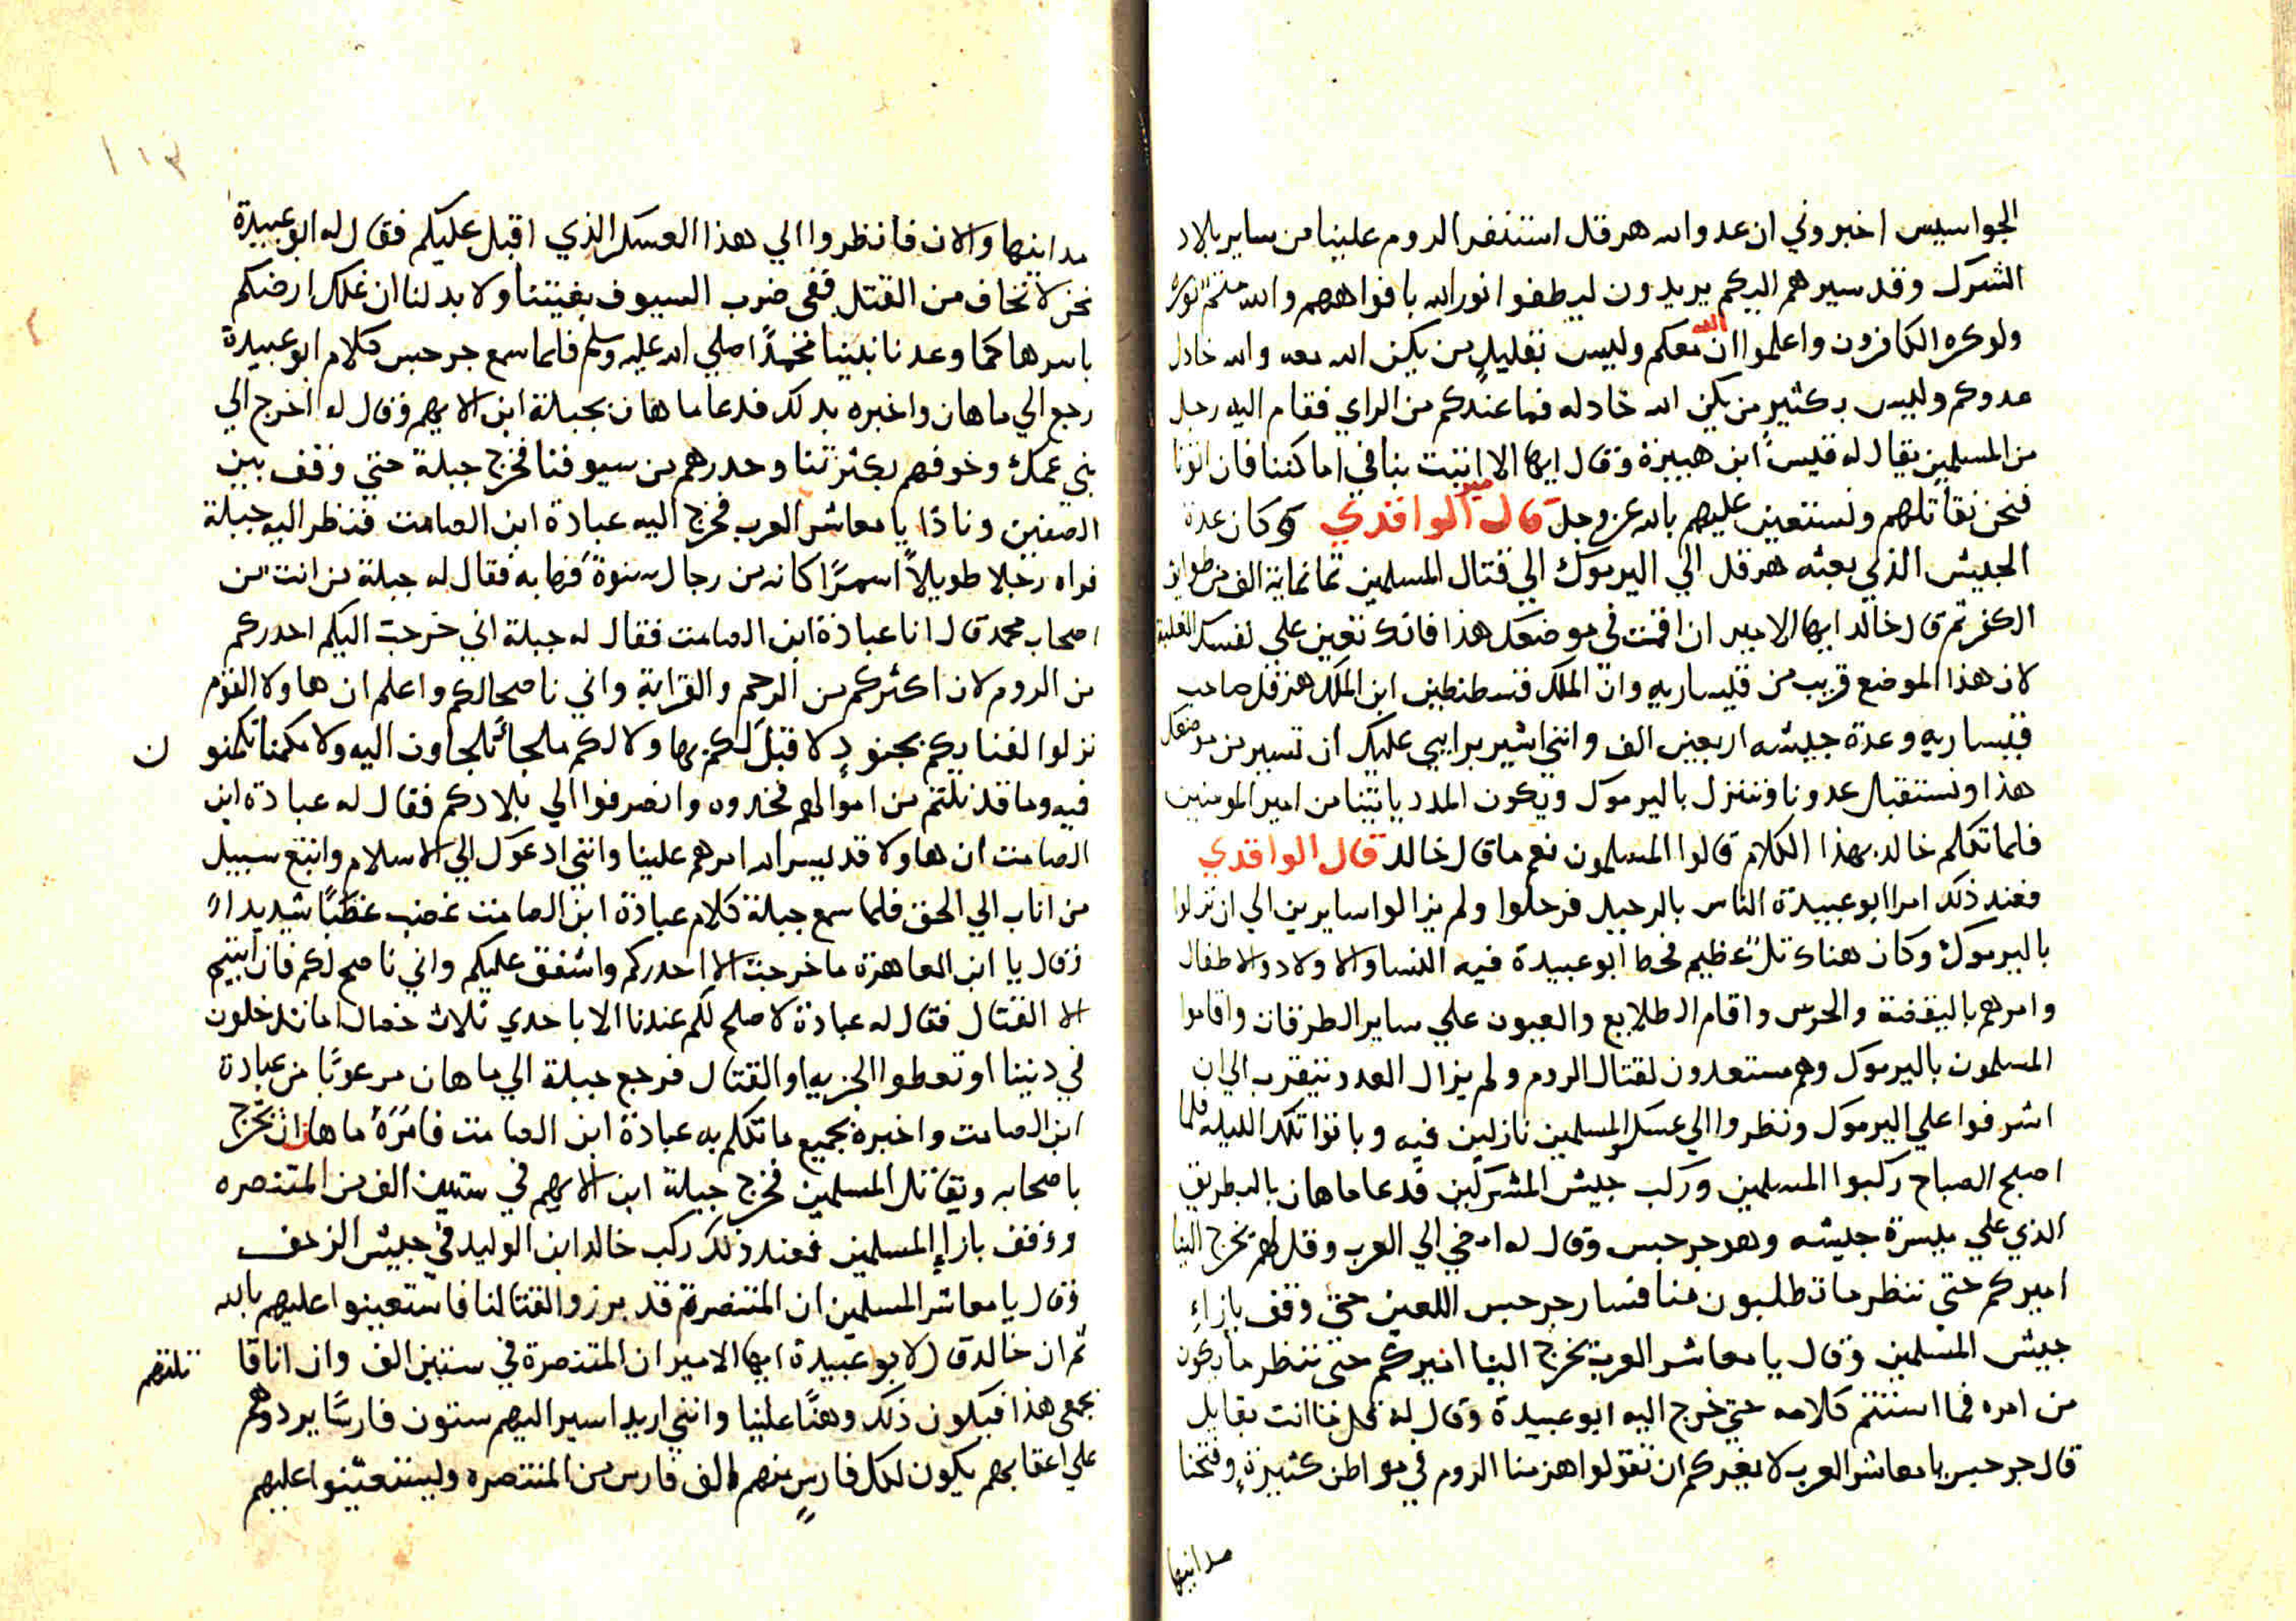 الجواسيس اخبروني ان عدو الله هرقل استنفر الروم علينا من ساير بلاد
الشرك وقد سيرهم اليكم يريدون ليطفوا نور الله بافواههم والله متم نوره
ولوكره الكافرون واعلموا ان الله معكم وليس بقليل من يكن الله معه والله خادل
عدوكم وليس بكثير من يكن الله خادله فما عندكم من الراي فقام اليه رجل
من المسلمين يقال له قيس ابن هبيرة وقال ايها الامير اثبت بنا في اماكننا فان اتونا
فنحن نقاتلهم ونستعين عليهم بالله عز وجل قال الواقدي وكان عدة
الجيش الذي بعثه هرقل الي اليرموك الي قتال المسلمين ثمانماية الف من طوايف
الكفر ثم قال خالد ايها الامير ان اقمت في موضعك هذا فانك تعين علي نفسك
لان هذا الموضع قريب من قيساريه وان الملك قسطنطين ابن الملك هرقل صاحب
قيساريه وعدة جيشه اربعين الف وانني اشير برايي عليك ان تسير من موضعك
هذا ونستقبل عدونا وننزل باليرموك ويكون المدد ياتينا من امير المومنين
فلما تكلم خالد بهذا الكلام قالوا المسلمون نعم ما قال خالد قال الواقدي
فعند ذلك امر ابو عبيدة الناس بالرحيل فرحلوا ولم يزالوا سايرين الي ان نزلوا
باليرموك وكان هناك تل عظيم فحط ابو عبيدة فيه النسا والاولاد والاطفال
وامرهم باليقضة والحرس واقام الطلايع والعيون علي ساير الطرقات واقاموا
المسلمون باليرموك وهم مستعدون لقتال الروم ولم يزال العدد يتقرب الي ان
اشرفوا علي اليرموك ونظروا الي عسكر المسلمين نازلين فيه وباتوا تلك الليله فلما
اصبح الصباح ركبوا المسلمين وركب جيش المشركين فدعا ماهان بالبطريق
الذي علي ميسرة جيشه وهو جرجس وقال له امضي الي العرب وقل لهم يخرج الينا
اميركم حتي ننظر ما تطلبون منا فسار جرجس اللعين حتي وقف بازاء
جيش المسلمين وقال يا معاشر العرب يخرج الينا اميركم حتي ننظر ما يكون
من امره فما استتم كلامه حتي خرج اليه ابو عبيدة وقال له
قال جرجس يا معاشر العرب لا يغركم ان تقولوا هزمنا الروم في مواطن كثيرة وفتحنا
مداينها
١١٣
مداينها والان فانظروا الي هذا العسكر الذي اقبل عليكم فقال له ابو عبيدة
نحن لا نخاف من القتل ففي ضرب السيوف بغيتنا ولا بد لنا ان نملك ارضكم
باسرها كما وعدنا نبينا محمدا صلي الله عليه وسلم فلما سمع جرجس كلام ابو عبيدة
رجع الي ماهان واخبره بدلك فدعا ماهان بجبلة ابن الايهم وقال له اخرج الي
بني عمك وخوفهم بكثرتنا وحدرهم من سيوفنا فخرج جبلة حتي وقف بين
الصفين ونادا يا معاشر العرب فخرج اليه عبادة ابن الصامت فنظر اليه جبلة
فراه رجلا طويلا اسمرا كانه من رجال سنوة فهابه فقال له جبلة من انت من
اصحاب محمد قال انا عبادة ابن الصامت فقال له جبلة اني خرجت اليكم احدركم
من الروم لان اكثركم من الرحم والقرابة واني ناصحا لكم واعلم ان هاولا القوم
نزلوا لفنايكم بجنود لا قبل لكم بها ولا لكم ملجا تلجاون اليه ولا مكمنا تكمنو ن
فيه وما قد نلتم من اموالهم فخدوه وانصرفوا الي بلادكم فقال له عبادة ابن
الصامت ان هاولا قد يسر الله امرهم علينا وانني ادعوك الي الاسلام واتبع سبيل
من اناب الي الحق فلما سمع جبلة كلام عبادة ابن الصامت غضب غظبا شديدا
وقال يا ابن العاهرة ما خرجت الا احدركم واشفق عليكم واني ناصح لكم فان ابيتم
الا القتال فقال له عبادة لا صلح لكم عندنا الا باحدي ثلاث خصال اما تدخلون
في ديننا او تعطوا الجزيه او القتال فرجع جبلة الي ماهان مرعوبا من عبادة
ابن الصامت واخبره بجميع ما تكلم به عبادة ابن الصامت فامره ماهان ان يخرج
باصحابه ويقاتل المسلمين فخرج جبلة ابن الايهم في ستين الف من المتنصره
ووقف بازاء المسلمين فعند ذلك ركب خالد ابن الوليد في جيش الزحف
وقال يا معاشر المسلمين ان المتنصرة قد برزوا لقتالنا فاستعينوا عليهم بالله
ثم ان خالد قال لابو عبيدة ايها الامير ان المتنصرة في ستين الف وان انا قا تلتهم
بجمعي هذا فيكون ذلك وهنا علينا وانني اريد اسير اليهم ستون فارسا يردوهم
علي اعقابهم يكون لكل فارس منهم الف فارس من المتنصره وليستعينوا عليهم